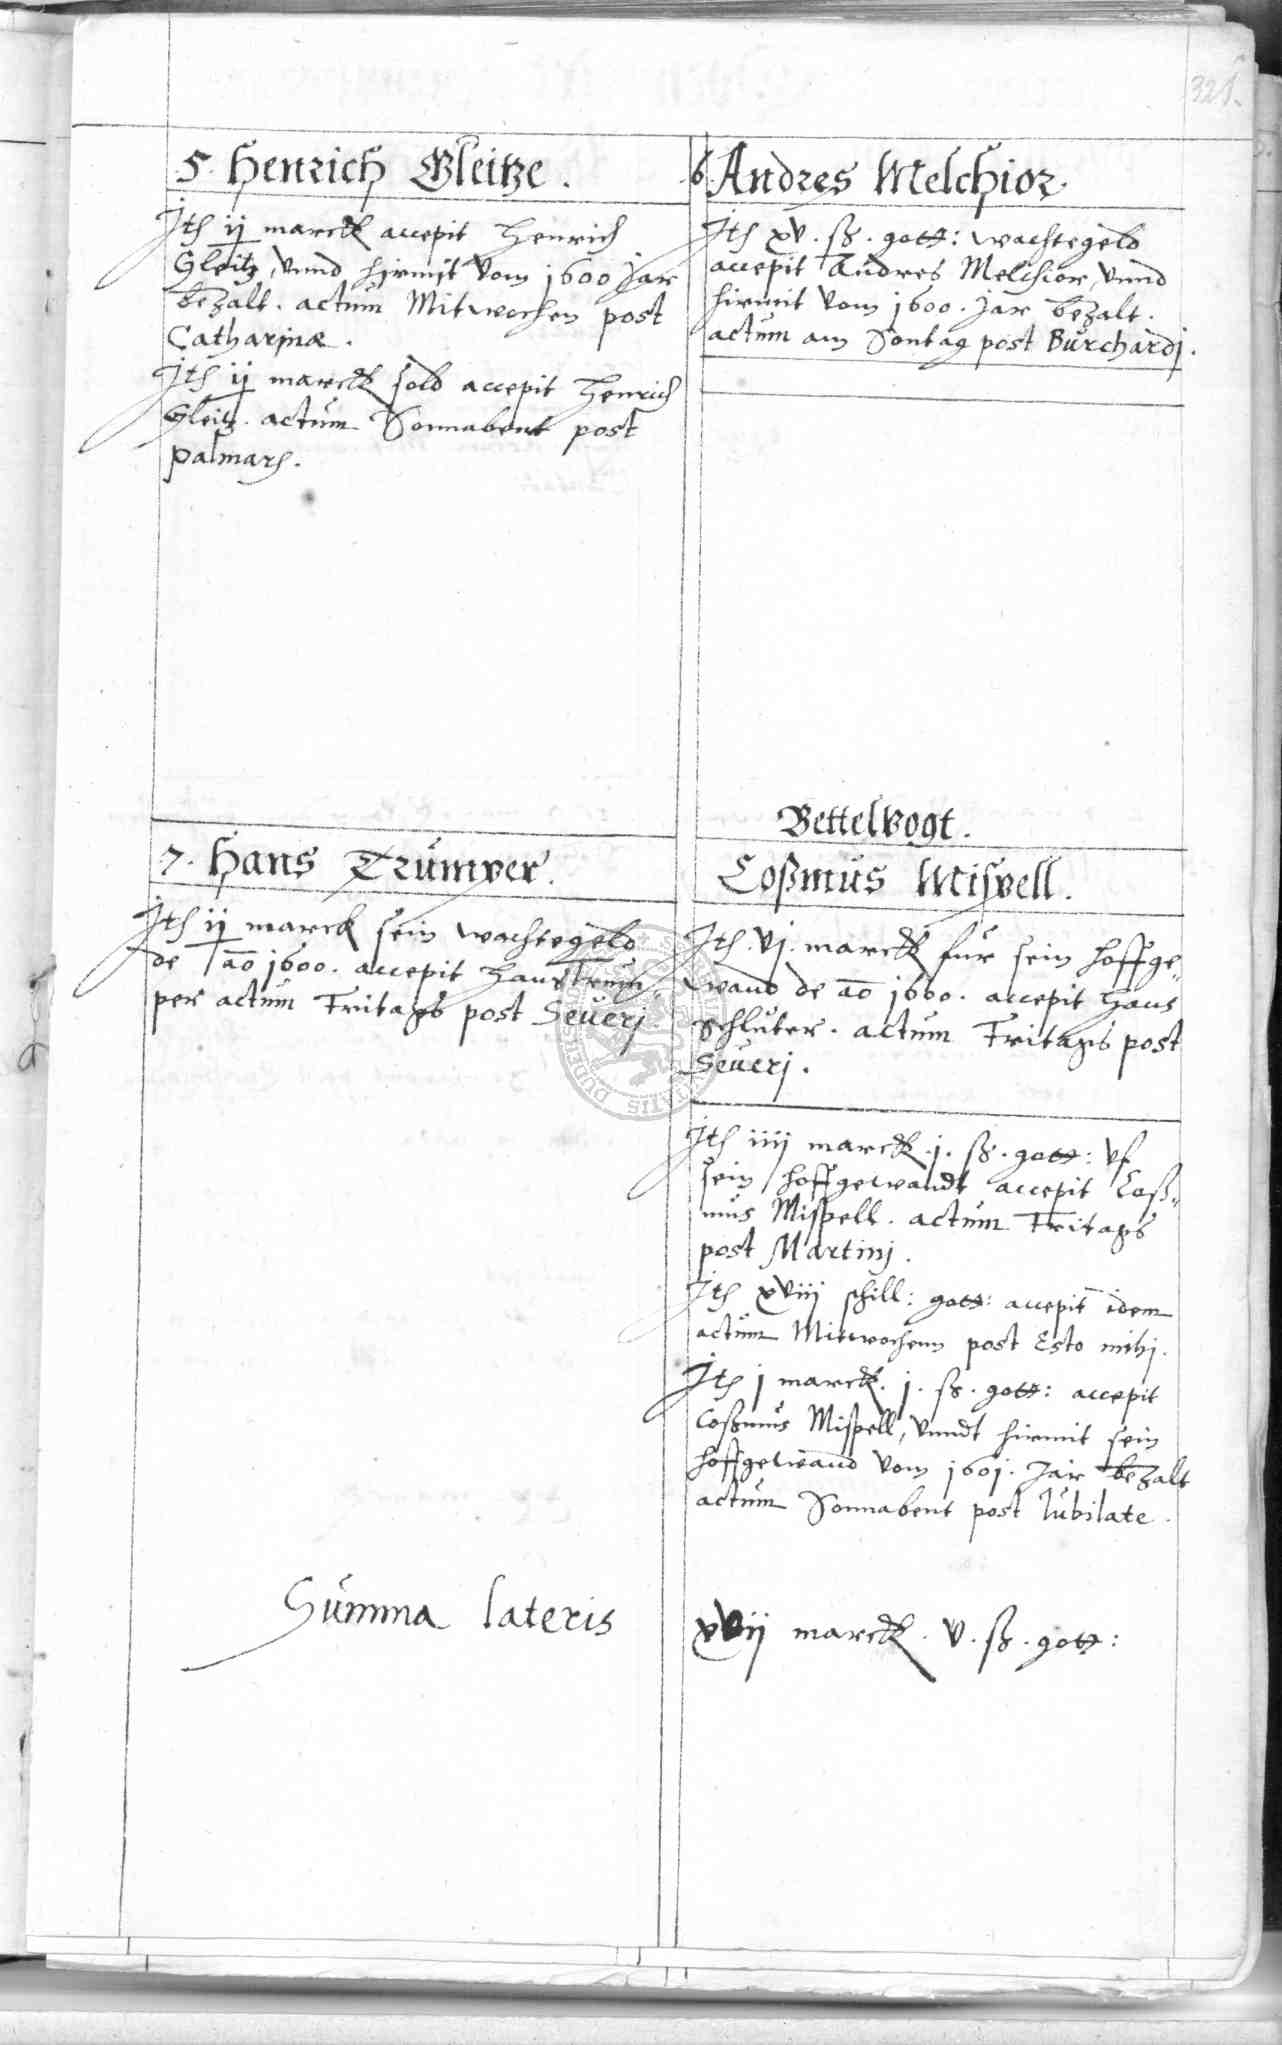 321.
5. Henrich Gleitze.
Jtꝭ ij marck accepit Henrich
Gleitz, vnnd hirmit vom 1600 Jar
bezalt. actum Mitwochen post
Catharinæ.
Jtꝭ ij marck sold accepit Henrich
Gleitz. actum Sonnabent post
palmarꝭ.
6. Andres Melchior.
Jtꝭ xv. ß. gott: wachtegeld
accepit Andres Melchior, vnnd
hirmit vom 1600. Jar bezalt.
actum am Sontag post Burchardj.
7. Hans Trumper.
Jtꝭ ij marck sein wachtegeld
de ao 1600. accepit Hans Trum
per actum Fritags post Seuerj
Bettelvogt.
Coßmus Mispell.
Jtꝭ. vj. marck fur sein hoffge„
wand de ao 1600. accepit Hans
Schluter. actum Fritags post
Seuerj.
Jtꝭ iiij marck. j. ß. gott: vf
sein hoffgewandt accepit Coß„
mus Mispell. actum Fritags
post Martinj.
Jtꝭ xviij schill: gott: accepit idem
actum Mitwochenn post Esto mihj.
Jtꝭ j marck. j. ß. gott: accepit
Coßmus Mispell, vnndt hirmit sein
hoffgewand vom 1601. Jar bezalt
actum Sonnabent post Iubilate.
Summa lateris
xvij marck. v. ß. gott: